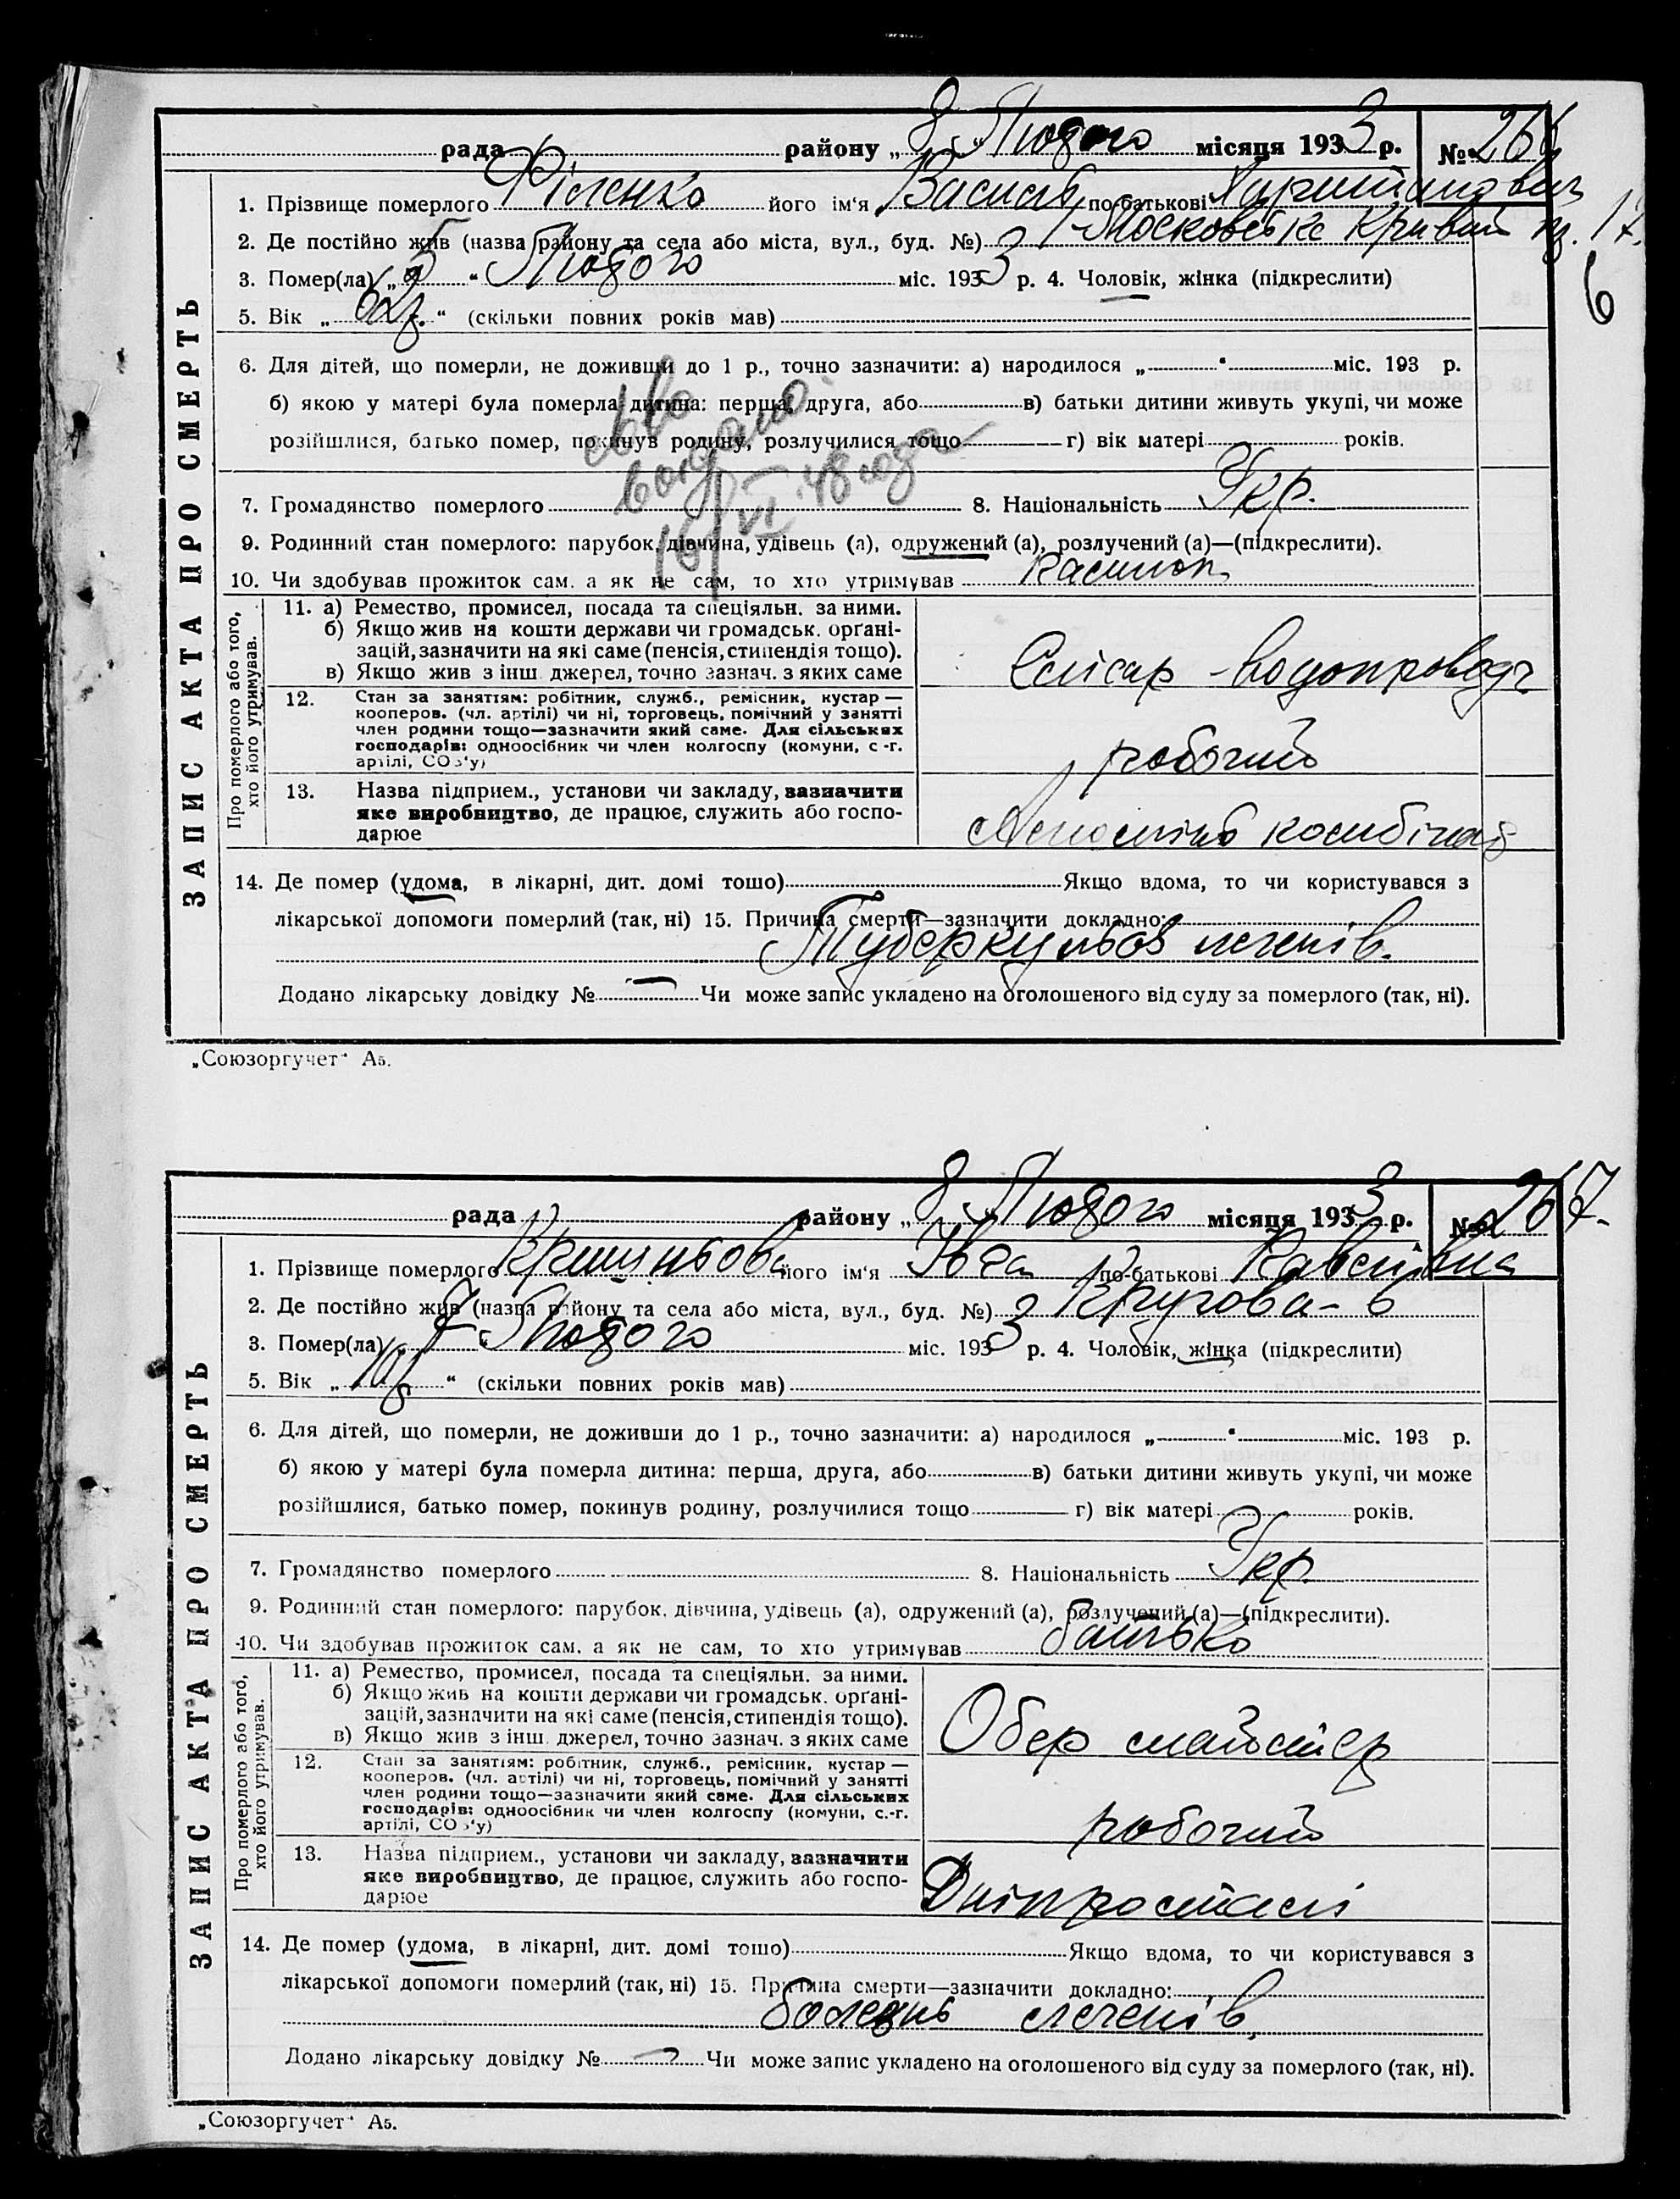 рада району „ 8 “ Лютого місяця 1933 р. № 266
1. Прізвище померлого Філенко його ім‘я Василь по-батькові
2. Де постійно жив (назва району та села або міста, вул., буд. №) Московське Кривий 17.
6
3. Помер(ла) „ 5 “ Лютого міс. 1933 р. 4. Чоловік, жінка (підкреслити)
5. Вік „ 62 р. “ (скільки повних років мав)
6. Для дітей, що померли, не доживши до 1 р., точно зазначити: а) народилося „ “ міс. 193 р.
б) якою у матері була померла дитина: перша, друга, або в) батьки дитини живуть укупі, чи може
розійшлися, батько помер, покинув родину, розлучилися тощо г) вік матері років.
св-во
выдано
16/VI 48 года
7. Громадянство померлого 8. Національність Укр.
9. Родинний стан померлого: парубок, дівчина, удівець (а), одружений (а), розлучений (а)—(підкреслити).
10. Чи здобував прожиток сам. а як не сам, то хто утримував
ЗАПИС АКТА ПРО СМЕРТЬ
Про померлого або того,
хто його утримував.
11. а) Ремество, промисел, посада та спеціяльн. за ними.
б) Якщо жив на кошти держави чи громадськ. орґані-
зацій, зазначити на які саме (пенсія, стипендія тощо).
в) Якщо жив з інш. джерел, точно зазнач. з яких саме
Слюсар - водопровода
12. Стан за заняттям: робітник, служб., ремісник, кустар —
кооперов. (чл. артілі) чи ні, торговець, помічний у занятті
член родини тощо—зазначити який саме. Для сільських
господарів: одноосібник чи член колгоспу (комуни, с.-г.
артілі, СОЗ‘у)
робочий
13. Назва підприєм., установи чи закладу, зазначити
яке виробництво, де працює, служить або госпо-
дарює
комбінат
14. Де помер (удома, в лікарні, дит. домі тощо) Якщо вдома, то чи користувався з
лікарської допомоги померлий (так, ні) 15. Причина смерти—зазначити докладно:
Туберкульоз легенів.
Додано лікарську довідку № — Чи може запис укладено на оголошеного від суду за померлого (так, ні).
„Союзоргучет“ А5.
рада району „ 8 “ Лютого місяця 1933 р. № 267
1. Прізвище померлого його ім‘я по-батькові Павлівна
2. Де постійно жив (назва району та села або міста, вул., буд. №) Кругова - 6
3. Помер(ла) „ 7 “ Лютого міс. 1933 р. 4. Чоловік, жінка (підкреслити)
5. Вік „ “ (скільки повних років мав)
6. Для дітей, що померли, не доживши до 1 р., точно зазначити: а) народилося „ “ міс. 193 р.
б) якою у матері була померла дитина: перша, друга, або в) батьки дитини живуть укупі, чи може
розійшлися, батько помер, покинув родину, розлучилися тощо г) вік матері років.
7. Громадянство померлого 8. Національність Укр.
9. Родинний стан померлого: парубок, дівчина, удівець (а), одружений (а), розлучений (а)—(підкреслити).
10. Чи здобував прожиток сам. а як не сам, то хто утримував Батько
ЗАПИС АКТА ПРО СМЕРТЬ
Про померлого або того,
хто його утримував.
11. а) Ремество, промисел, посада та спеціяльн. за ними.
б) Якщо жив на кошти держави чи громадськ. орґані-
зацій, зазначити на які саме (пенсія, стипендія тощо).
в) Якщо жив з інш. джерел, точно зазнач. з яких саме
Обер майстер
12. Стан за заняттям: робітник, служб., ремісник, кустар —
кооперов. (чл. артілі) чи ні, торговець, помічний у занятті
член родини тощо—зазначити який саме. Для сільських
господарів: одноосібник чи член колгоспу (комуни, с.-г.
артілі, СОЗ‘у)
робочий
13. Назва підприєм., установи чи закладу, зазначити
яке виробництво, де працює, служить або госпо-
дарює
Дніпросталі
14. Де помер (удома, в лікарні, дит. домі тощо) Якщо вдома, то чи користувався з
лікарської допомоги померлий (так, ні) 15. Причина смерти—зазначити докладно:
болезнь легенів.
Додано лікарську довідку № — Чи може запис укладено на оголошеного від суду за померлого (так, ні).
„Союзоргучет“ А5.